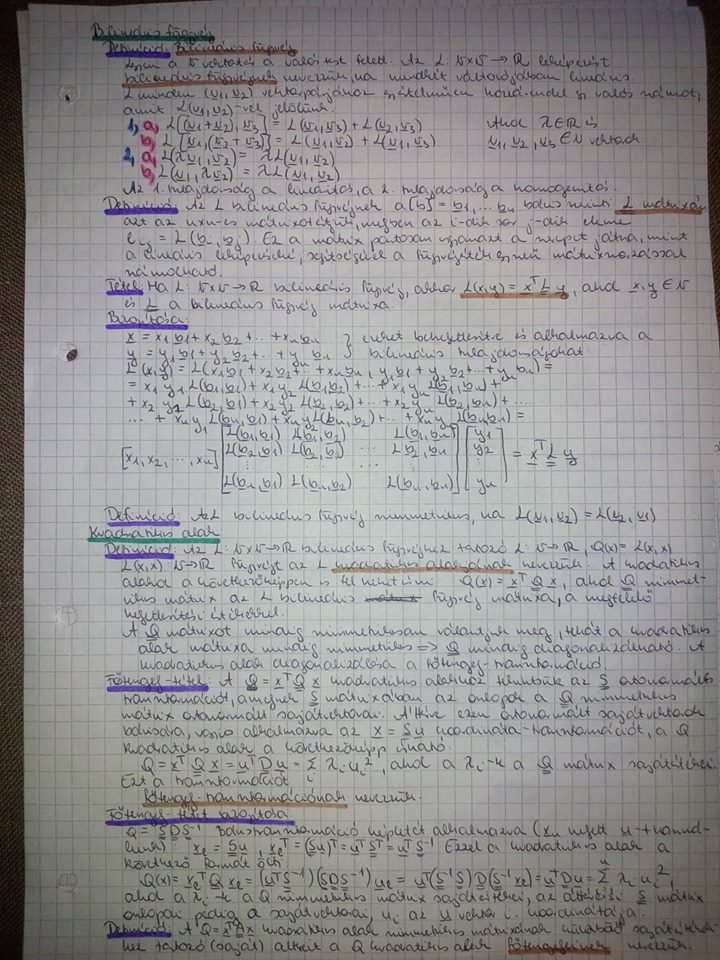 Bilineáris függvény
Definíció: Bilineáris függvény
Legyen a V vektortér a valós test felett. Az L: V×V → R leképezést
bilineáris függvénynek nevezzük, ha mindkét változójában lineáris.
L minden (v1, v2) vektorpárjához egyértelműen hozzárendel egy valós számot,
amit L(v1, v2)-vel jelölünk.
1, a, L[(v1+v2), v3] = L(v1, v3) + L(v2, v3) Ahol λ∈R és
b, L[v1, (v2+v3)] = L(v1, v2) + L(v1, v3) v1, v2, v3 ∈ V vektorok
2, a, L(λv1, v2) = λL(v1, v2)
b, L(v1, λv2) = λL(v1, v2)
Az 1. tulajdonság a linearitás, a 2. tulajdonság a homogenitás.
Definíció: Az L bilineáris függvénynek a [b] = b1, ... bn bázis szerinti L mátrixán
azt az n×n-es mátrixot értjük, melyben az i-dik sor j-dik eleme
lij = L(bi, bj). Ez a mátrix pontosan ugyanazt a szerepet játssza, mint
a lineáris leképezéseknél, segítségével a függvényérték egyszerű mátrixszorzással
számolható.
Tétel: Ha L: V×V → R bilineáris függvény, akkor L(x,y) = x^T L y, ahol x, y ∈ V
és L a bilineáris függvény mátrixa.
Bizonyítás:
x = x1b1 + x2b2 + ... + xnbn } ezeket behelyettesítve és alkalmazva a
y = y1b1 + y2b2 + ... + ynbn bilineáris tulajdonságokat.
L(x,y) = L(x1b1 + x2b2 + ... + xnbn, y1b1 + y2b2 + ... + ynbn) =
= x1y1 L(b1, b1) + x1y2 L(b1, b2) + ... + x1yn L(b1, bn) +
+ x2y1 L(b2, b1) + x2y2 L(b2, b2) + ... + x2yn L(b2, bn) + ...
... + xny1 L(bn, b1) + xny2 L(bn, b2) + ... + xnyn L(bn, bn) =
[x1, x2, ..., xn] [L(b1, b1) L(b1, b2) L(b1, bn)] [y1]
[L(b2, b1) L(b2, b2) ... L(b2, bn)] [y2] = x^T L y
[L(bn, b1) L(bn, b2) L(bn, bn)] [yn]
Definíció: Az L bilineáris függvény szimmetrikus, ha L(v1, v2) = L(v2, v1)
Kvadratikus alak
Definíció: Az L: V×V → R bilineáris függvényhez tartozó L: V → R, Q(x) = L(x, x)
L(x, x): V → R függvényt az L kvadratikus alakjának nevezzük. A kvadratikus
alakot a következőképpen is fel lehet írni: Q(x) = x^T Q x, ahol Q szimmet-
rikus mátrix az L bilineáris függvény mátrixa, a megfelelő
helyettesítési értékkel.
A Q mátrixot mindig szimmetrikusan választjuk meg, tehát a kvadratikus
alak mátrixa mindig szimmetrikus => Q mindig diagonalizálható. A
kvadratikus alak diagonalizálása a főtengely-transzformáció.
Főtengely-tétel: A Q = x^T Q x kvadratikus alakhoz létezik az S ortonormált
transzformáció, amelynek S mátrixában az oszlopok a Q szimmetrikus
mátrix ortonormált sajátvektorai. Áttérve ezen ortonormált sajátvektorok
bázisára, vagyis alkalmazva az x = Su koordináta-transzformációt, a Q
kvadratikus alak a következőképp írható:
Q = x^T Q x = u^T D u = Σ λi · ui², ahol a λi-k a Q mátrix sajátértékei.
Ezt a transzformációt
főtengely-transzformációnak nevezzük.
Főtengely-tétel bizonyítása:
Q = SDS^-1 bázistranszformáció képletét alkalmazva
xe = Su, xe^T = (Su)^T = u^T S^T = u^T S^-1 Ezzel a kvadratikus alak a
következő formát ölti:
Q(x) = xe^T Q xe = (u^T S^-1)(SDS^-1) ue = u^T(S^-1 S) D (S^-1 xe) = u^T D u = Σ λi · ui²,
ahol a λi-k a Q szimmetrikus mátrix sajátértékei, az áttérési S mátrix
oszlopai pedig a sajátvektorai, ui az u vektor i. koordinátája.
Definíció: A Q = x^T A x kvadratikus alak szimmetrikus mátrixának különböző sajátértékei-
hez tartozó (saját) altereit a Q kvadratikus alak főtengelyeinek nevezzük.